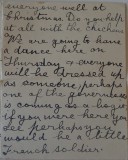 everyone well at
Christmas. Do you help
at all with the chickens
We are going to have
a dance here on
Thursday & everyone
will be dressed up
as someone, perhaps
one of the governesses
is coming as a
if you were here you
see perhaps you
would be a little
French soldier.